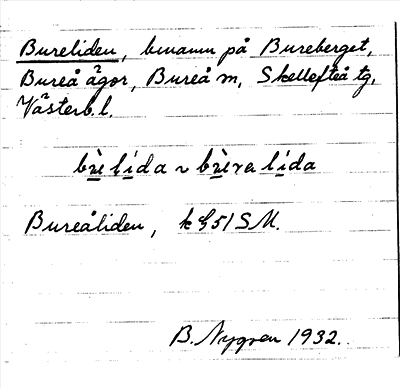 Bureliden, binamn på Bureberget,
Bureå ägor, Bureå m, Skellefteå tg,
Västerb. l.
bu̠̇̀re li̠da ~ bu̠̇̀rera li̠da
Bureåliden, k 51 SM.
B. Nygren 1932.